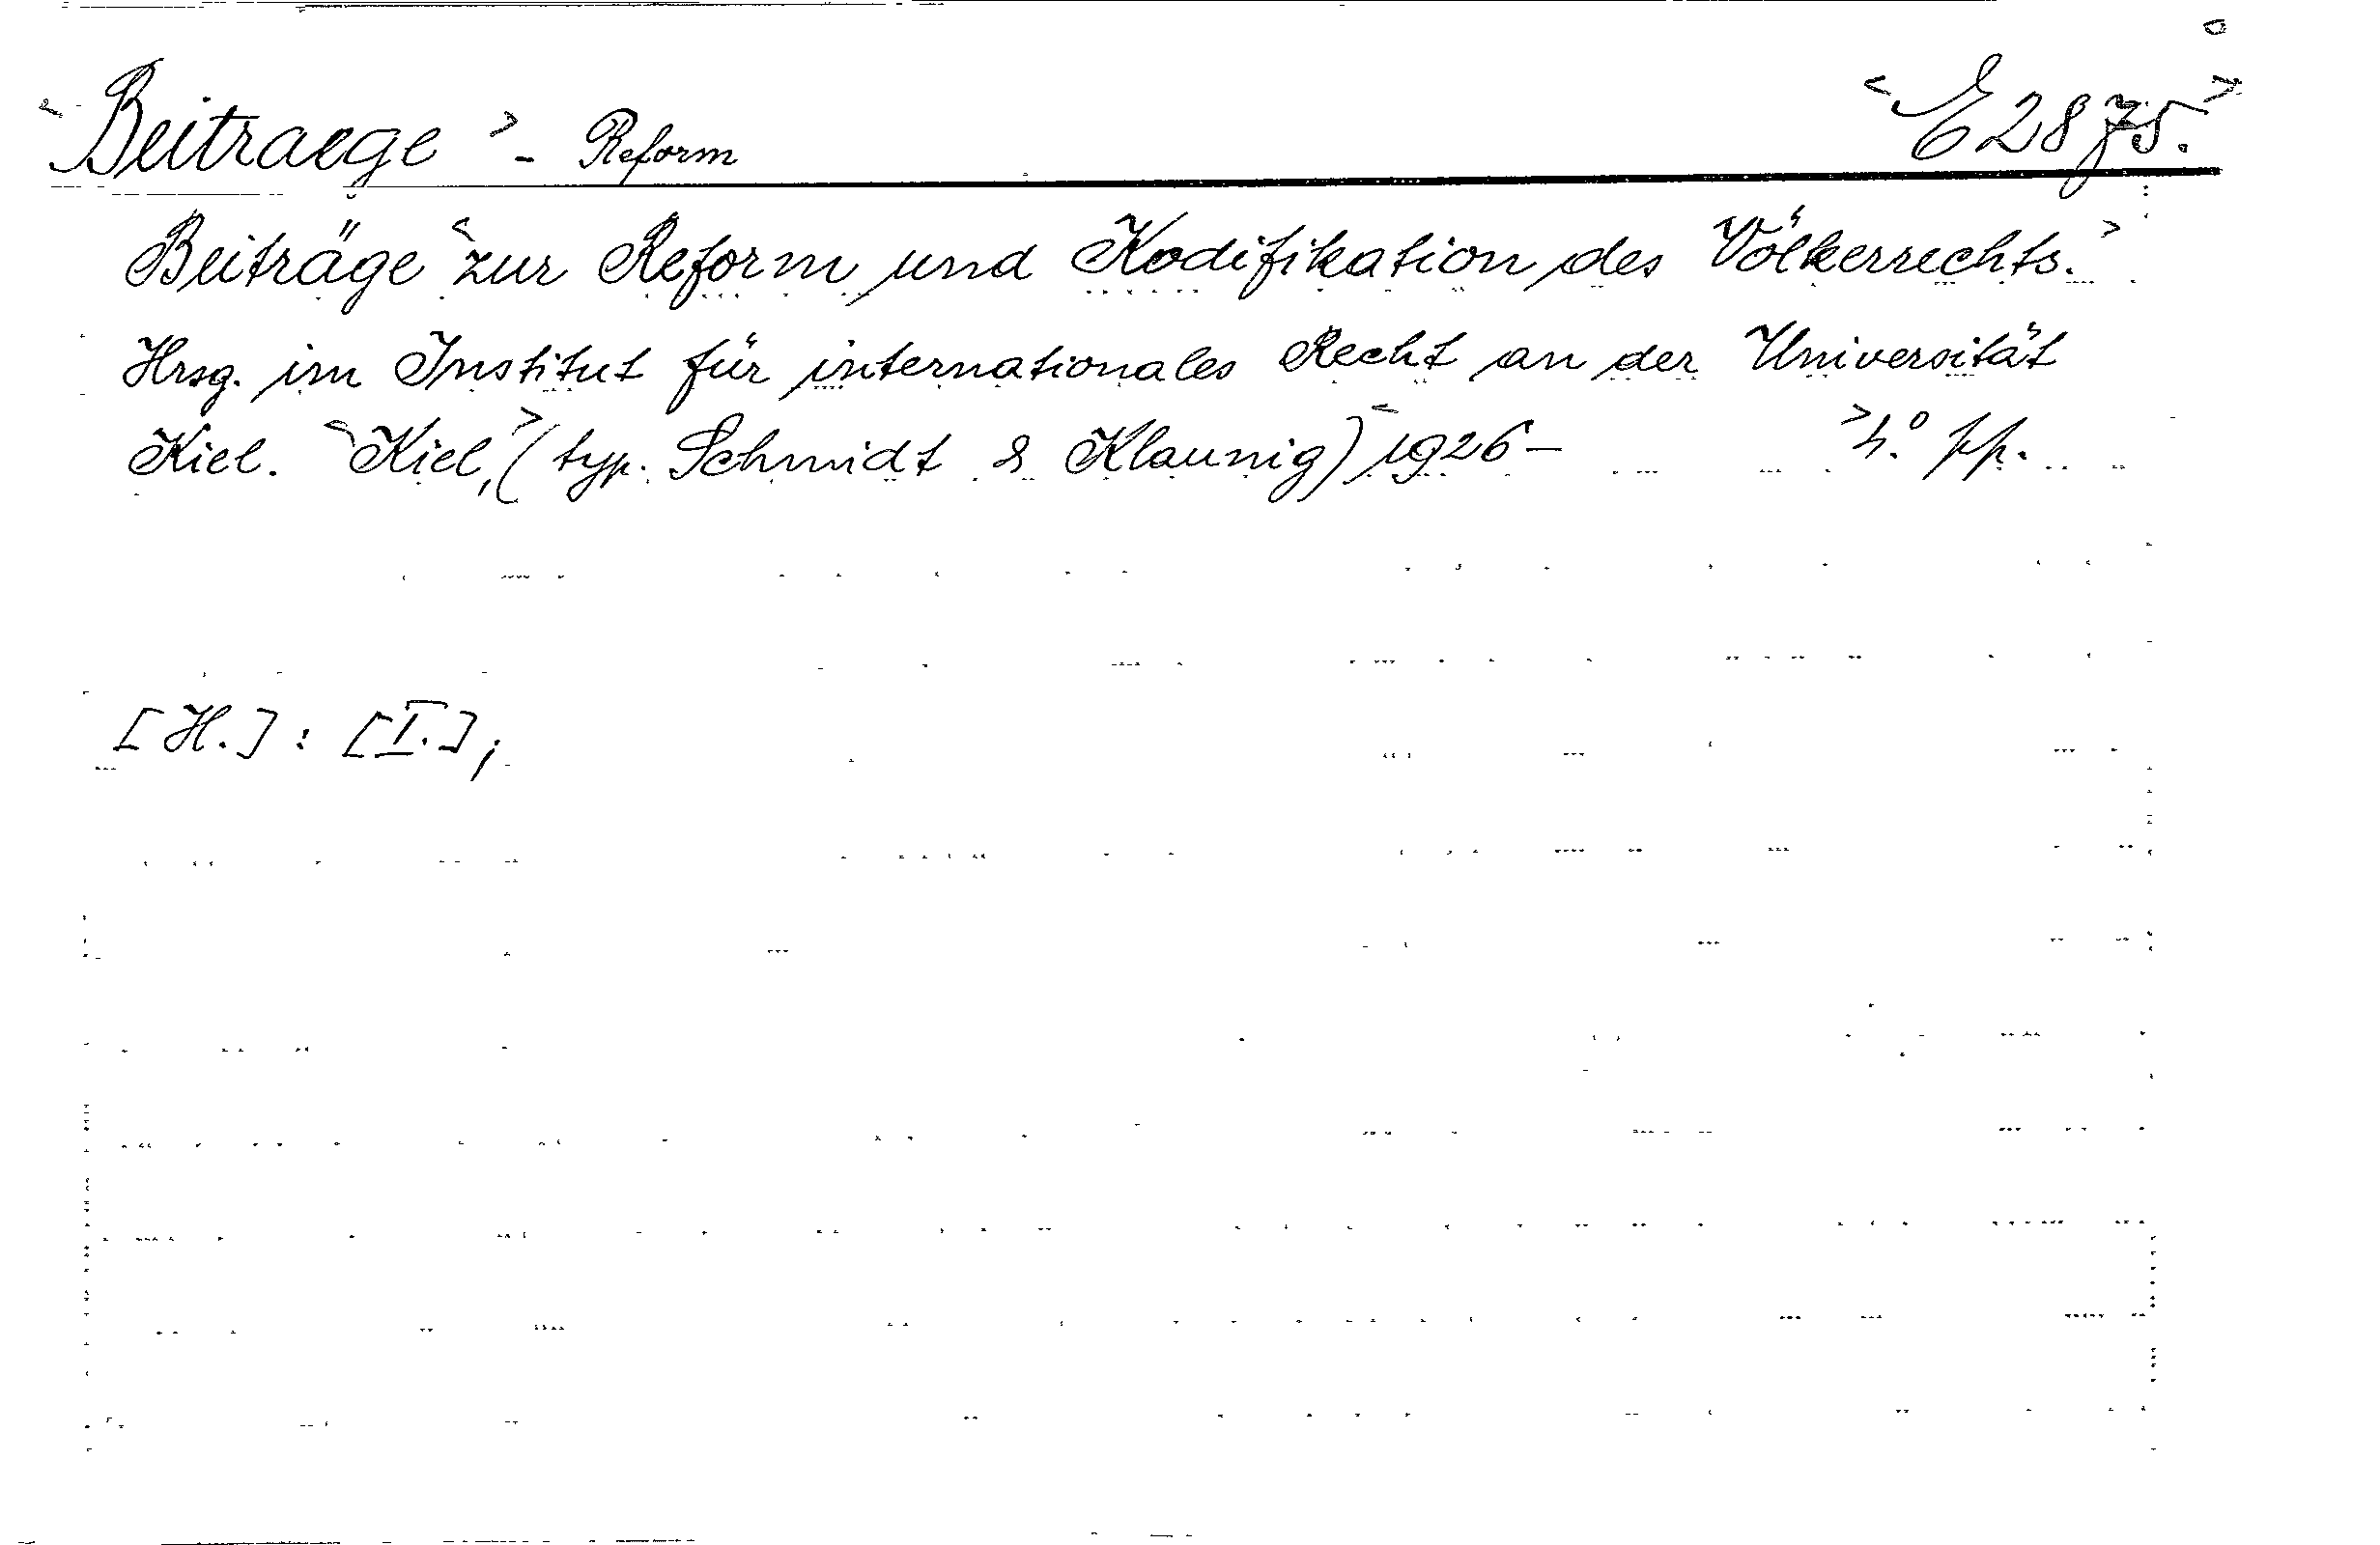 <Beitraege> - Reform <E2875.>
Beiträge <zur Reform und Kodifikation des Völkerrechts.>
Hrsg. im Institut für internationales Recht an der Universität
Kiel. <Kiel,> (typ. Schmidt & Klaunig) <1926- > 4.° pp.
[H.]: [I.];